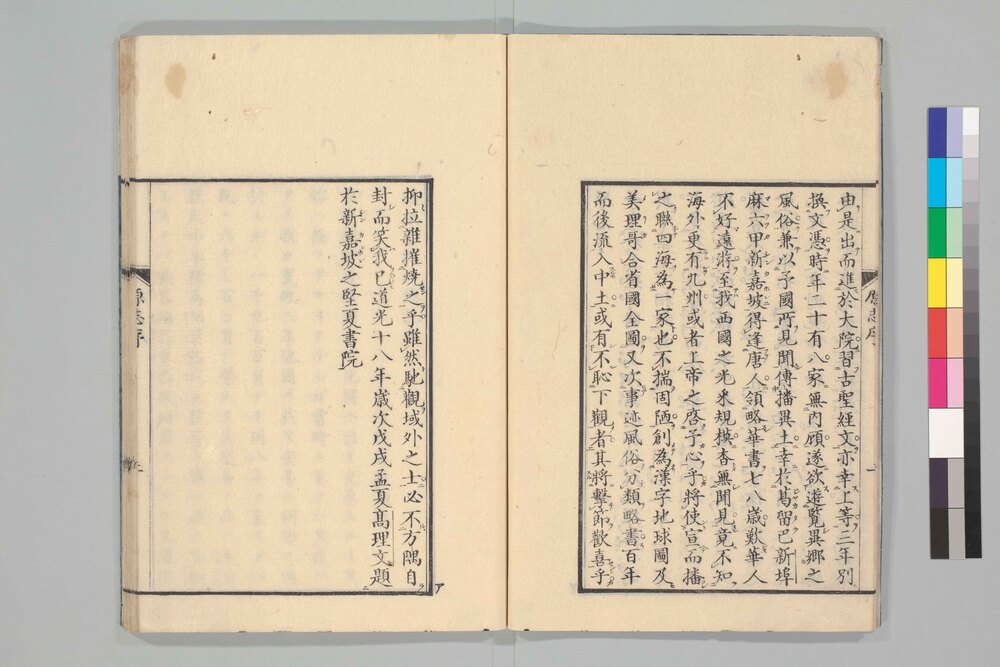 由是出而進於大院習古聖經文亦幸上等三年別
撰文憑時年二十有八家無內顧遂欲遊覽異鄉之
風俗兼以予國所見聞傳播異土幸於葛留巴新埠
麻六甲新嘉坡得逢唐人領略華書七八歲歎華人
不好遠游至我西國之光來規模杳無聞見竟不知
海外更有九州或者上帝之啓予心乎將使宣而播
之聯四海為一家也不揣固陋創為漢字地球圖及
美理哥合省國全圖又次事迹風俗分類略書百年
而後流入中土或有不恥下觀者其將擊節歡喜乎
抑拉雜摧燒之乎雖然馳觀域外之士必不方隅自
封而笑我已道光十八年歲次戊戌孟夏高理文題
於新嘉坡之堅夏書院
原志序